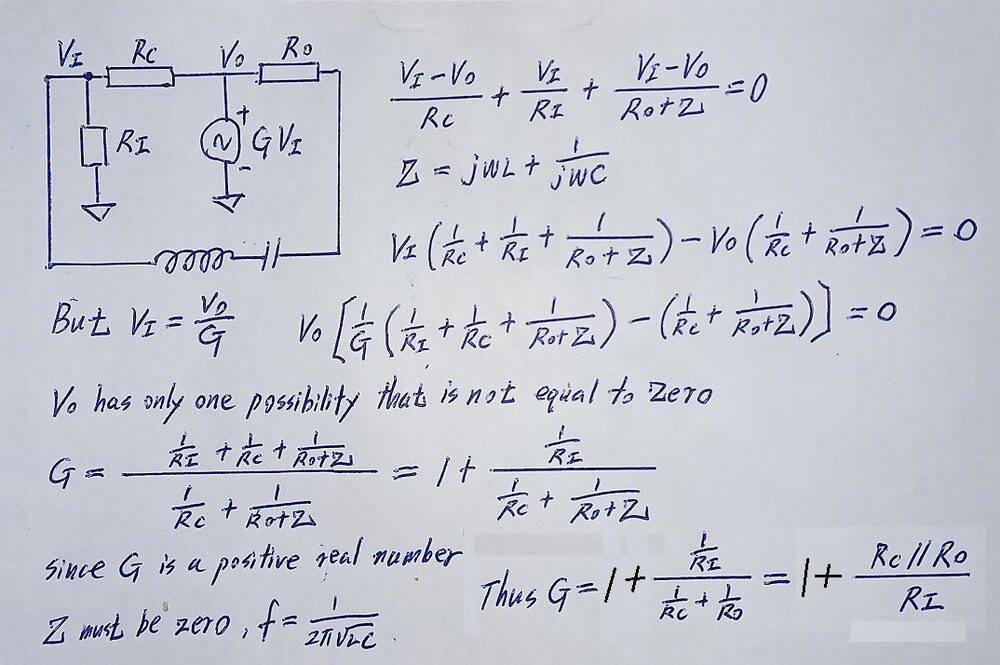 VI RC VO RO
RI + GVI -
(VI-VO)/RC + VI/RI + (VI-VO)/(RO+Z) = 0
Z = jWL + 1/jWC
VI (1/RC + 1/RI + 1/(RO+Z)) - VO (1/RC + 1/(RO+Z)) = 0
But VI = VO/G VO [1/G (1/RI + 1/RC + 1/(RO+Z)) - (1/RC + 1/(RO+Z))] = 0
VO has only one possibility that is not equal to zero
G = (1/RI + 1/RC + 1/(RO+Z))/(1/RC + 1/(RO+Z)) = 1 + (1/RI)/(1/RC + 1/(RO+Z))
since G is a positive real number
Z must be zero, f = 1/(2π√LC)
Thus G = 1 + (1/RI)/(1/RC + 1/RO) = 1 + (RC//RO)/RI